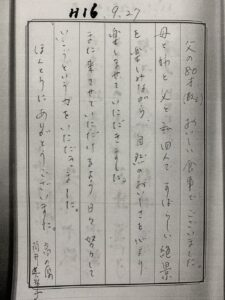 H16 9.27
父の80才、おいしい食事でございました。
母と妹と父と私四人で、すばらしい絶景
を楽しみながら、自然のおいしさを心より
楽しませていただきました。
また来させていただけるよう日々努力して
いこうという力をいただきました。
ほんとうにありがとうございました。